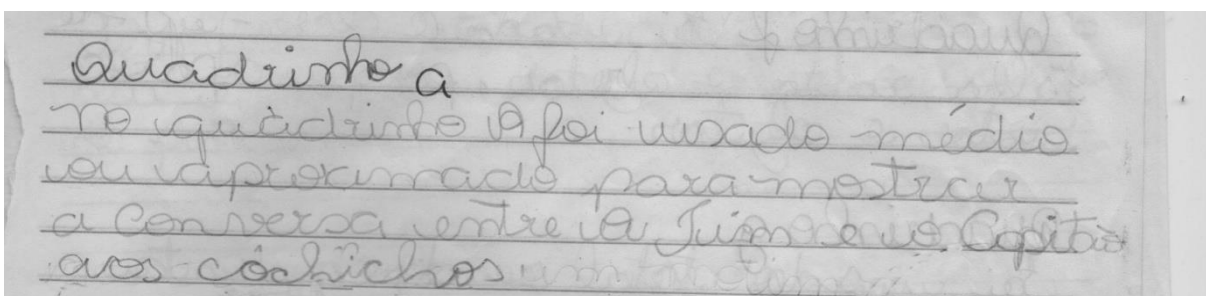 Quadrinho a
no quadrinho A foi usado médio
ou aproximado para mostrar
a conversa entre a e o Capitão
aos côchichos